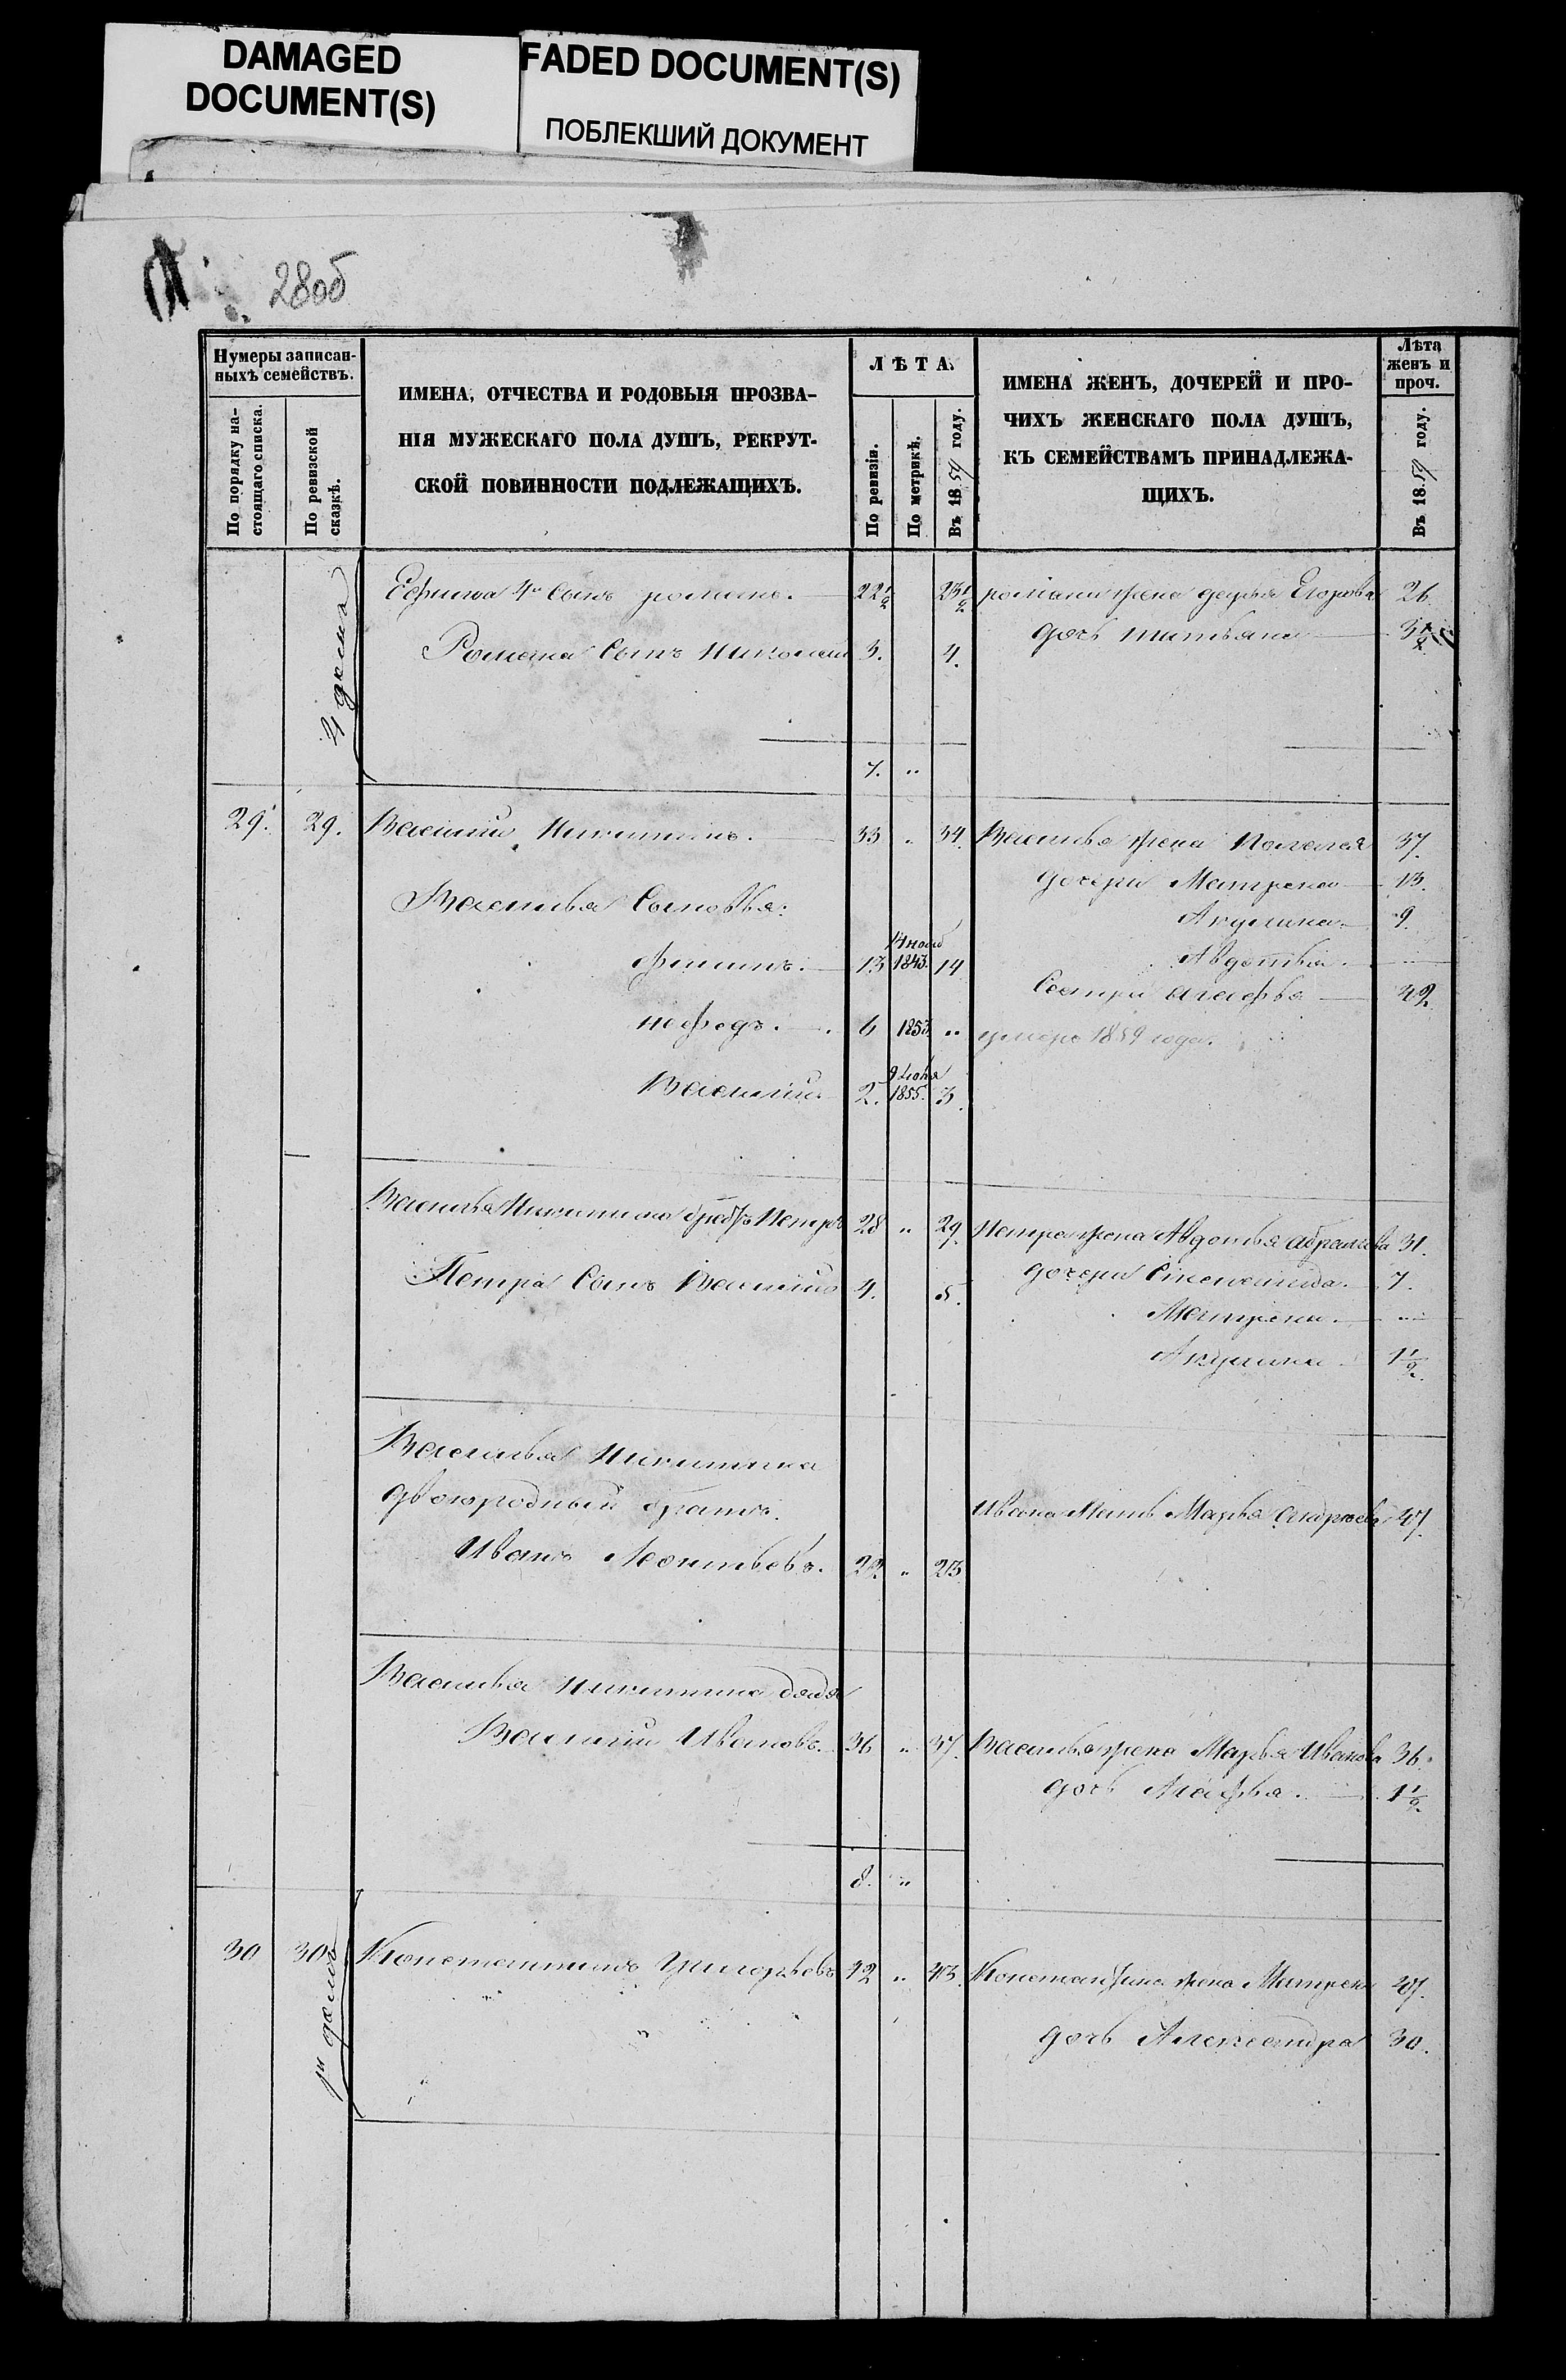 DAMAGED
DOCUMENT(S)
FADED DOCUMENT(S)
ПОБЛЕКШИЙ ДОКУМЕНТ
28об
Нумеры записан-
ныхъ семействъ.
По порядку на-
стоящаго списка.
По ревизской
сказкѣ.
ИМЕНА, ОТЧЕСТВА И РОДОВЫЯ ПРОЗВА-
НІЯ МУЖЕСКАГО ПОЛА ДУШЪ, РЕКРУТ-
СКОЙ ПОВИННОСТИ ПОДЛЕЖАЩИХЪ.
ЛѢТА.
По ревизіи.
По метрикѣ.
Въ 18 году.
ИМЕНА ЖЕНЪ, ДОЧЕРЕЙ И ПРО-
ЧИХЪ ЖЕНСКАГО ПОЛА ДУШЪ,
КЪ СЕМЕЙСТВАМЪ ПРИНАДЛЕЖА-
ЩИХЪ.
Лѣта
женъ и
проч.
Въ 18 году.
4 дома
Ефима 4й Сынъ романъ. 22 1/2 23 1/2 романа жена дарья Егорова 26
дочь татьяна 3 1/2
Романа Сынъ Николай 3. 4.
7. "
29. 29. Василий Никитинъ. 33 " 34. Василья жена Пелагея 37.
дочери Матрена 13.
Василья Сыновья: Акулина 9.
филипъ. 13 1843. 14 Авдотья. "
Сестра агафья 42
нефедъ. 6 1853. " умеръ 1859 года.
Василий 2. 9 Июня 1855. 3.
Василья Никитина братъ Петръ 28 " 29. Петра жена Авдотья абрамова 31.
дочери Степанида. 7.
Петра Сынъ Василий 4. 5.
Матрена. "
Акулина 1 1/2
Василья Никитина
двоюродный братъ.
Ивана Мать Марья андреева 47.
Иванъ Леонтьевъ. 22 " 23
Василья Никитина дядя
Василий Ивановъ. 36 " 37. Василья жена Марья Иванова 36.
дочь Агафья. 1 1/2
8. "
30 30 Константинъ Григорьевъ 42 " 43. Константина жена Матрена 47.
дочь Александра 30.
1й домъ